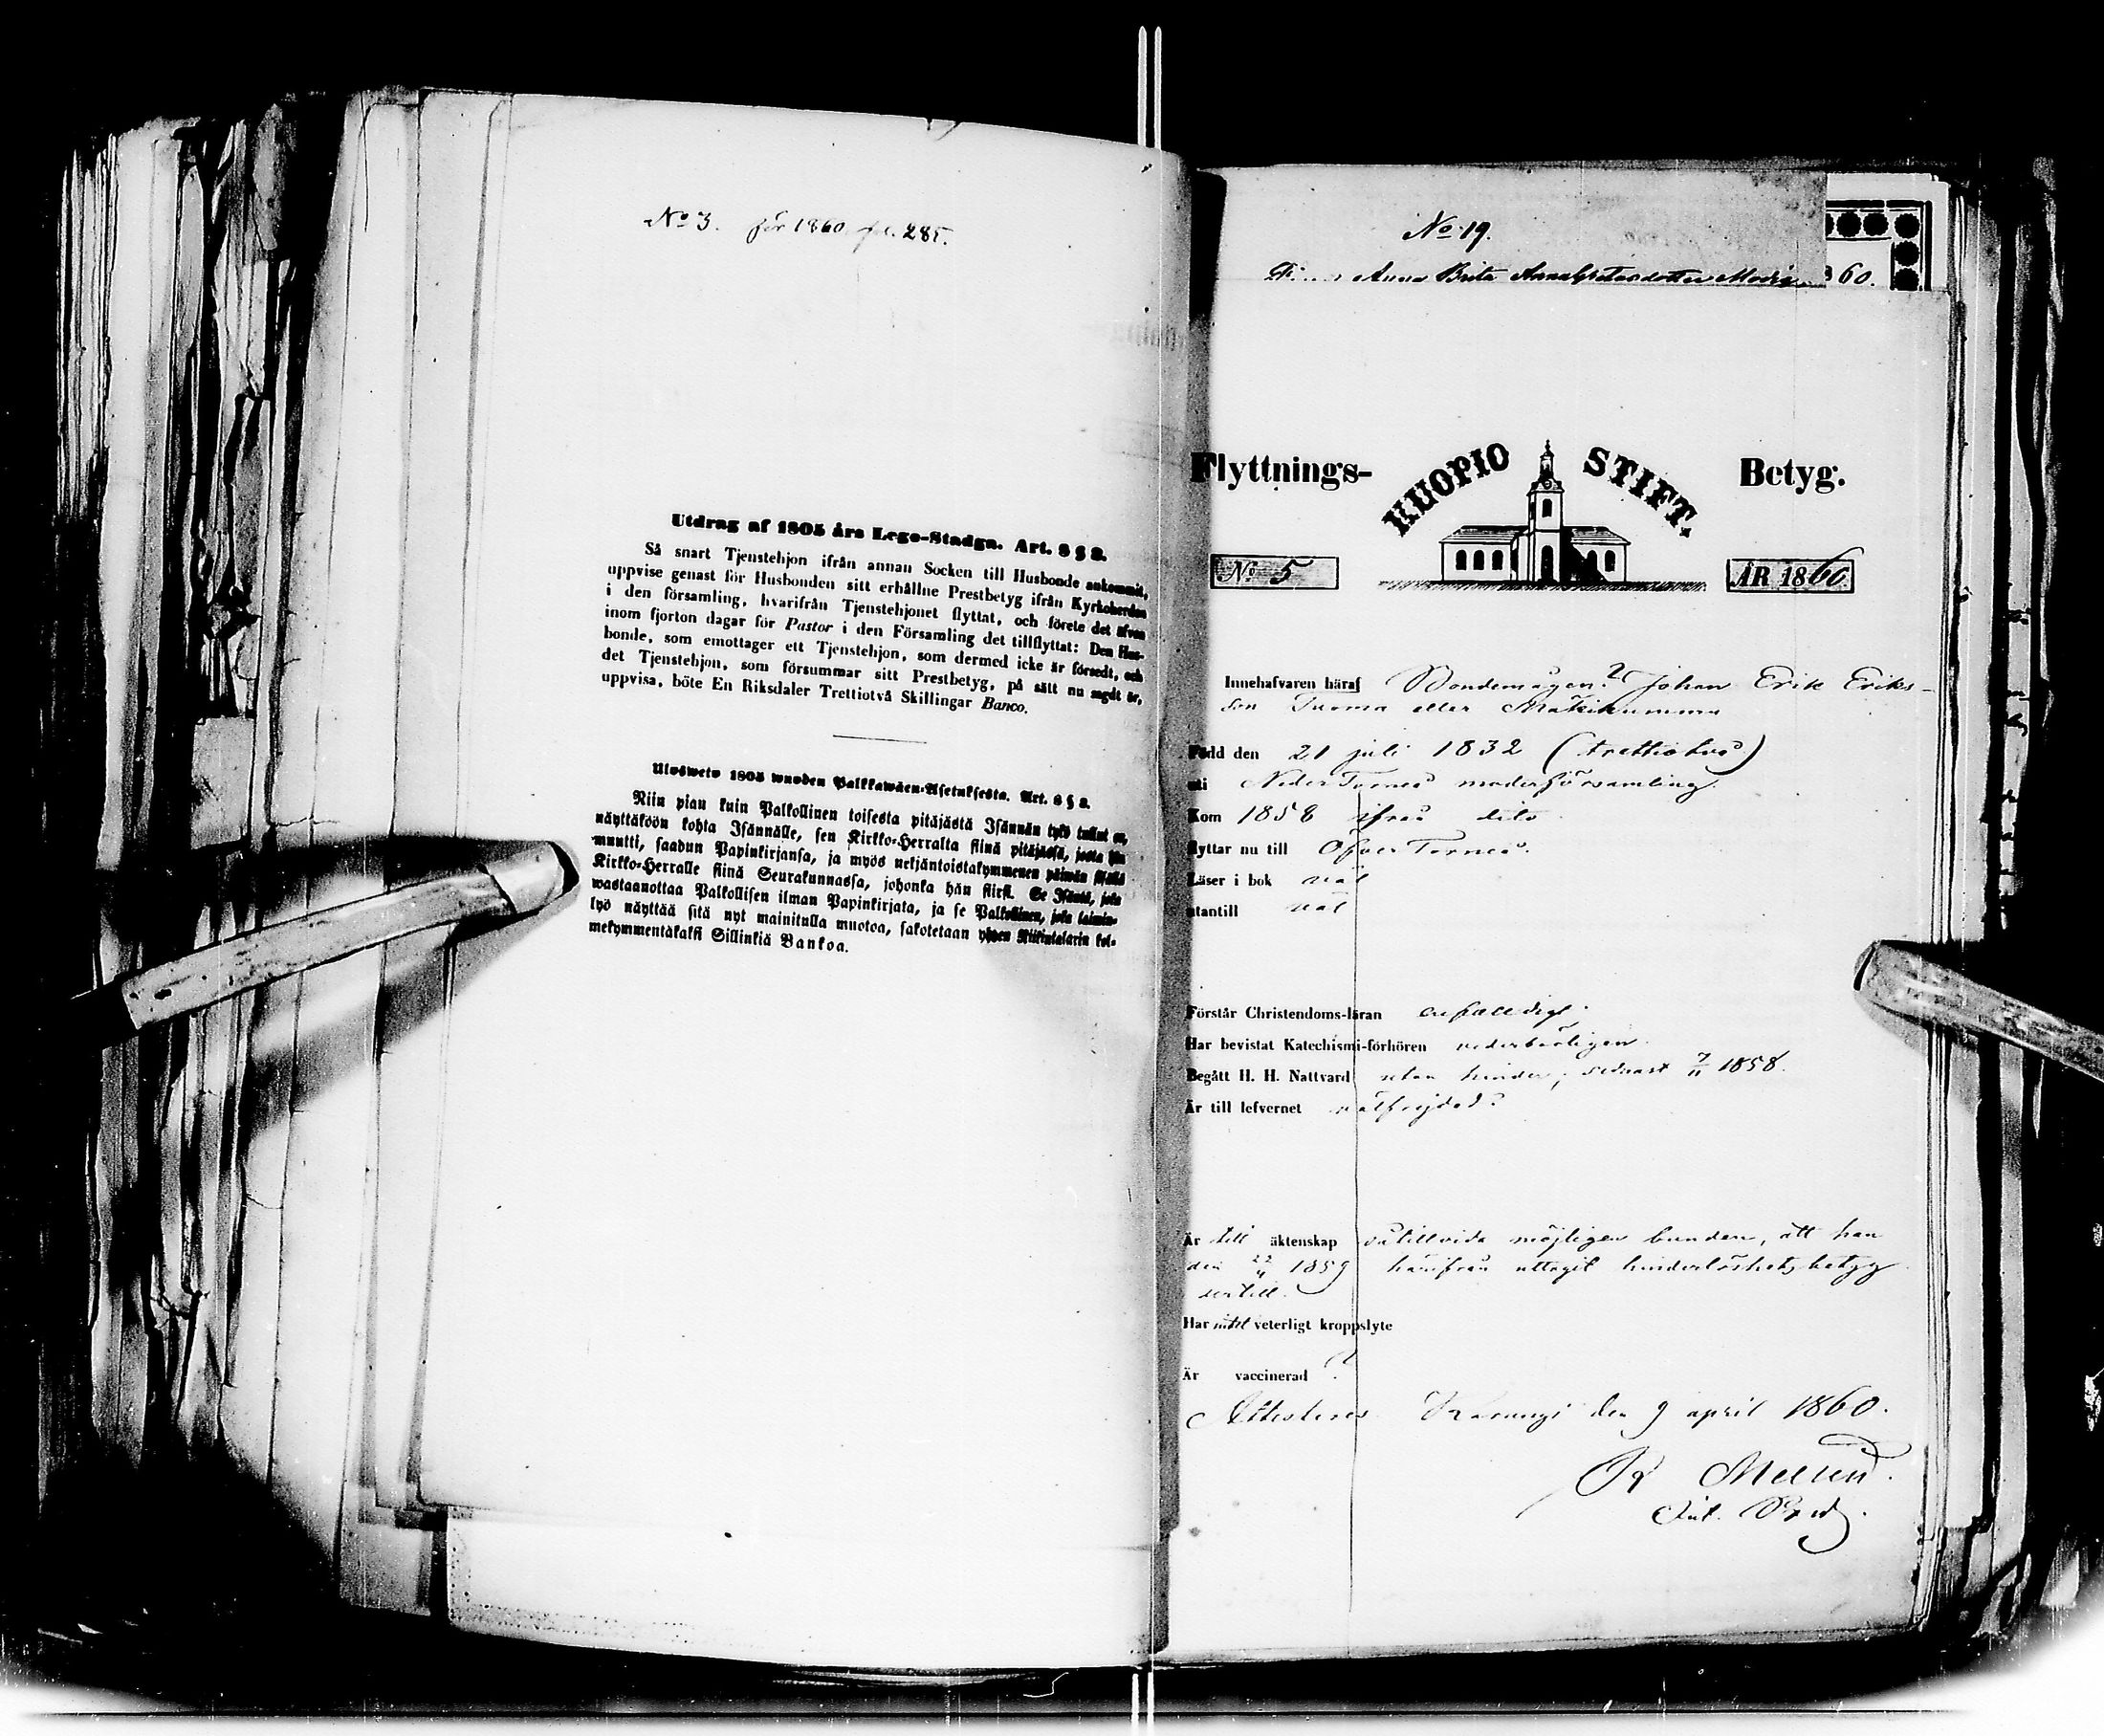 No 3. för 1860. fol. 285.
Utdrag af 1805 års Lego-Stadga. Art. 8 § 2.
Så snart Tjenstehjon ifrån annan Socken till Husbonde ankommit,
uppvise genast för Husbonden sitt erhållne Prestbetyg ifrån Kyrkoherden
i den församling, hvarifrån Tjenstehjonet flyttat, och förete det äfven
inom fjorton dagar för Pastor i den Församling det tillflyttat: Den Hus-
bonde, som emottager ett Tjenstehjon, som dermed icke är försedt, och
det Tjenstehjon, som försummar sitt Prestbetyg, på sätt nu sagdt är,
uppvisa, böte En Riksdaler Trettiotvå Skillingar Banco.
Ulosweto 1805 wuoden Palkkawäen-Asetuksesta. Art. 8 § 2.
Niin pian kuin Palkollinen toisesta pitäjästä Isännän tykö tullut on,
näyttäköön kohta Isännälle, sen Kirkko-Herralta siinä pitäjässä, josta hän
muutti, saadun Papinkirjansa, ja myös neljäntoistakymmenen päiwän sisällä
Kirkko-Herralle siinä Seurakunnassa, johonka hän siirsi. Se Isäntä, joka
wastaanottaa Palkollisen ilman Papinkirjata, ja se Palkollinen, joka laimin-
lyö näyttää sitä nyt mainitulla muotoa, sakotetaan yhden Riikintalarin kol-
mekymmentäkaksi Sillinkiä Bankoa.
No 19.
Anna Brita Annagretasdotter 60.
Flyttnings- KUOPIO STIFT. Betyg.
No 5 ÅR 1860
Innehafvaren häraf Bondemågen? Johan Erik Eriks-
son Tuoma eller Mäkikumma
Född den 21 juli 1832 (trettiotvå)
uti Neder Torneå moderförsamling.
Kom 1858 ifrån dito
flyttar nu till Öfver Torneå.
Läser i bok väl
utantill väl
Förstår Christendoms-läran enfaldigt.
Har bevistat Katechismi-förhören vederbörligen.
Begått H. H. Nattvard utan hinder, senast 7/11 1858.
Är till lefvernet välfrejdad?
Är till äktenskap såtillvida möjligen bunden, att han
den 22/11 1859 härifrån uttagit hinderlöshetsbetyg
dertill.
Har intet veterligt kroppslyte
Är vaccinerad ?
Attesteras Karungi den 9 april 1860.